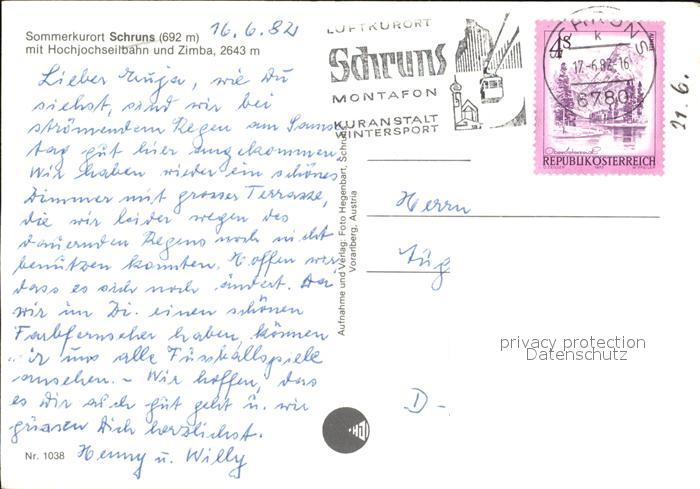 Sommerkurort Schruns (692 m)
mit Hochjochseilbahn und Zimba, 2643 m
16.6.82
Lieber
wie Du
siehst, sind wir bei
strömendem Regen am Sams-
tag gut hier angekommen.
Wir haben wieder ein schönes
Zimmer mit grosser Terrasse,
die wir leider wegen des
dauernden Regens noch nicht
benutzen konnten. Hoffen wir,
dass es sich noch ändert. Da
wir im Zi. einen schönen
Farbfernseher haben, können
wir uns alle Fussballspiele
ansehen. - Wir hoffen, das
es Dir auch gut geht u. wir
grüssen Dich herzlichst.
Henny u. Willy
Nr. 1038
Aufnahme und Verlag: Foto Hegenbart, Schruns
Vorarlberg, Austria
LUFTKURORT
Schruns
MONTAFON
KURANSTALT
WINTERSPORT
SCHRUNS
k
17.-6.82-16
6780
4S
REPUBLIK ÖSTERREICH
21.6.
Herrn
D-
privacy protection
Datenschutz